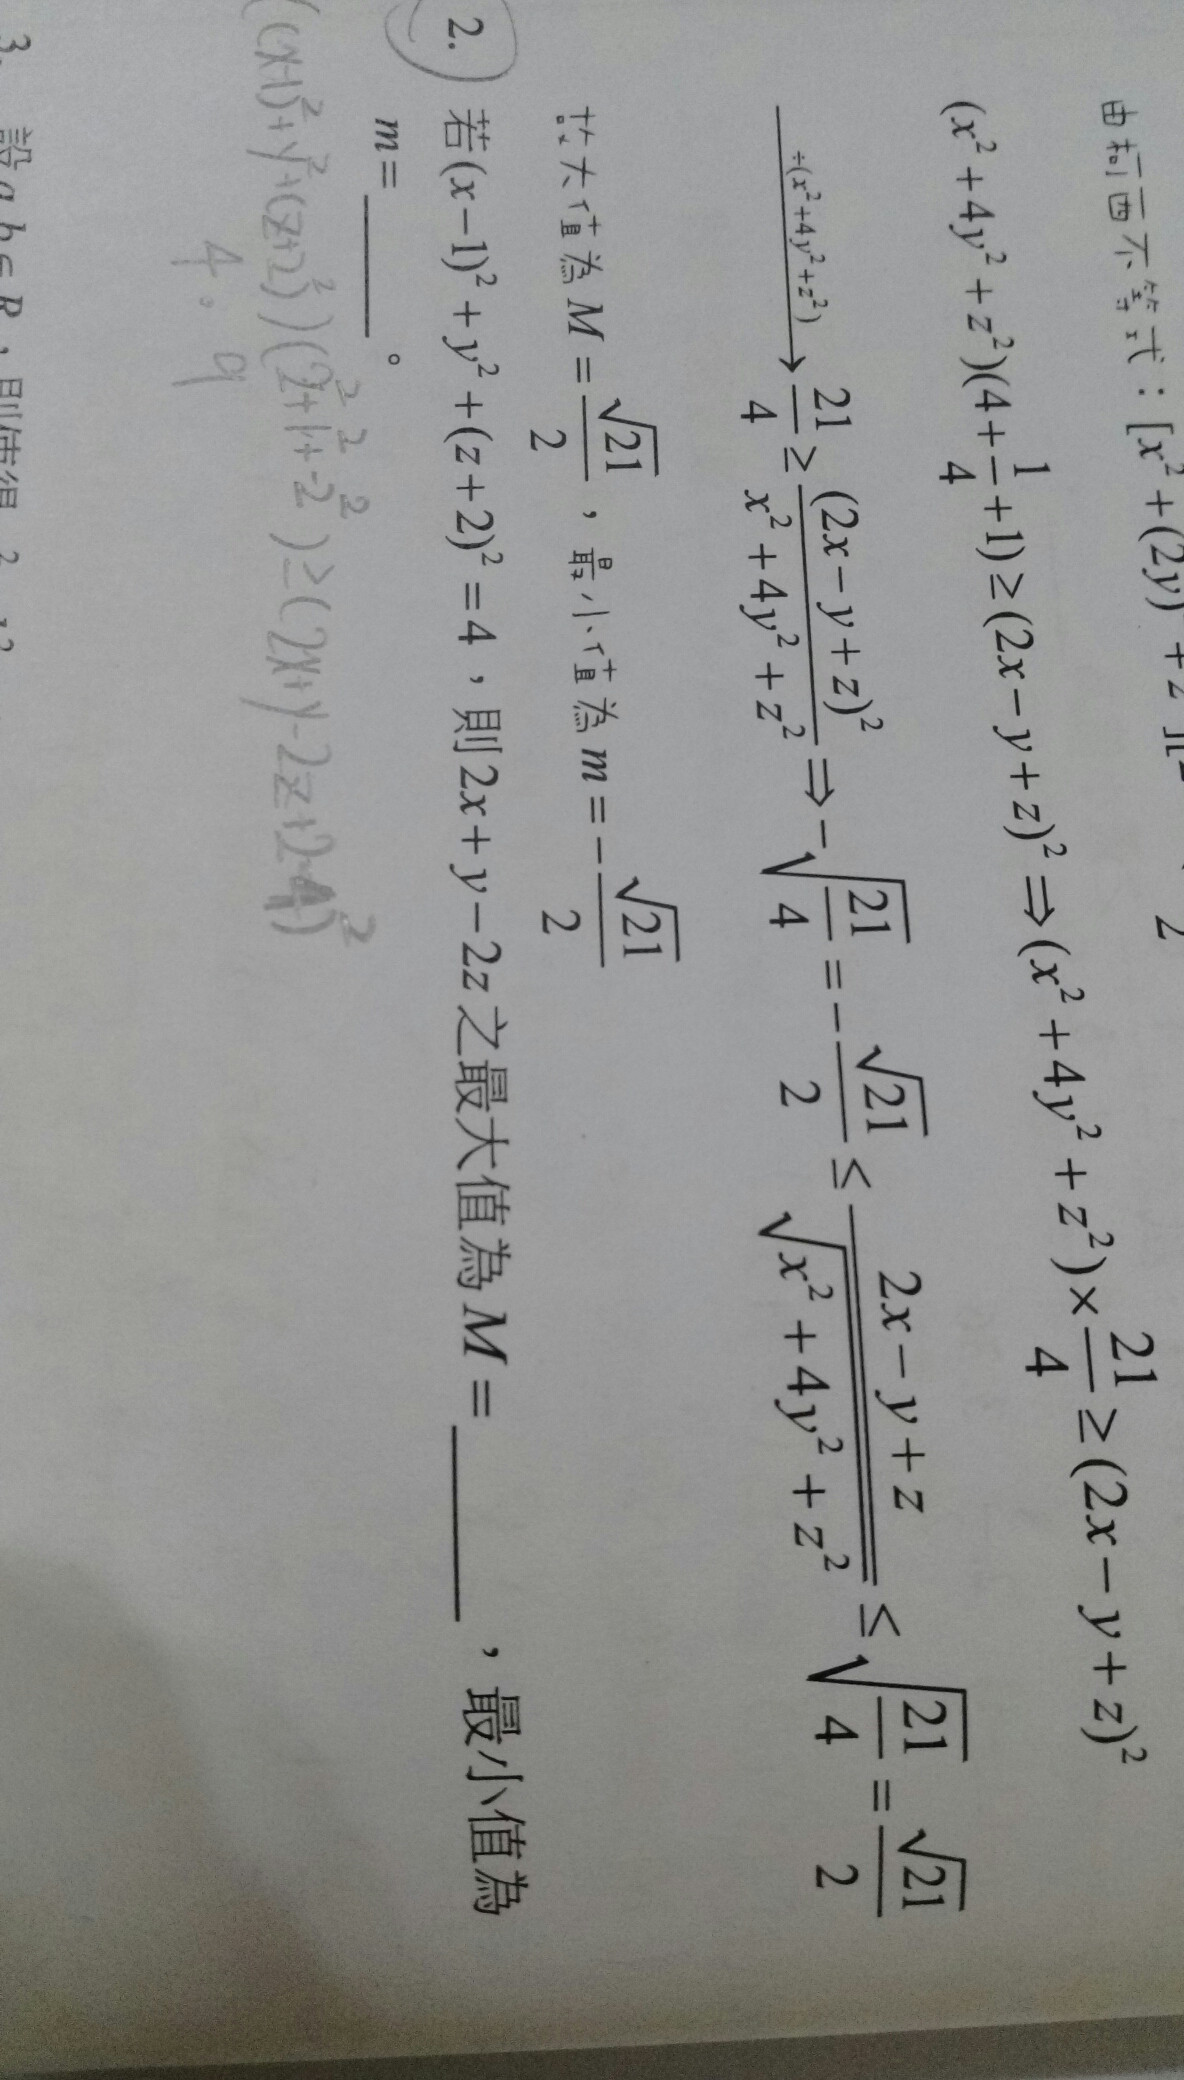 由柯西不等式：[x²+(2y)²+z²][2²
(x²+4y²+z²)(4+1/4+1)≥(2x−y+z)²⇒(x²+4y²+z²)×21/4≥(2x−y+z)²
÷(x²+4y²+z²)→ 21/4≥(2x−y+z)²/(x²+4y²+z²)⇒−√(21/4)=−√21/2≤(2x−y+z)/√(x²+4y²+z²)≤√(21/4)=√21/2
故最大值為M=√21/2，最小值為m=−√21/2
2. 若(x−1)²+y²+(z+2)²=4，則2x+y−2z之最大值為M=______，最小值為
m=______。
((x-1)²+y²+(z+2)²)(2²+1²+-2²)≥(2x+y-2z+2-4)²
4 · 9
3. 設a,b∈R，則使得